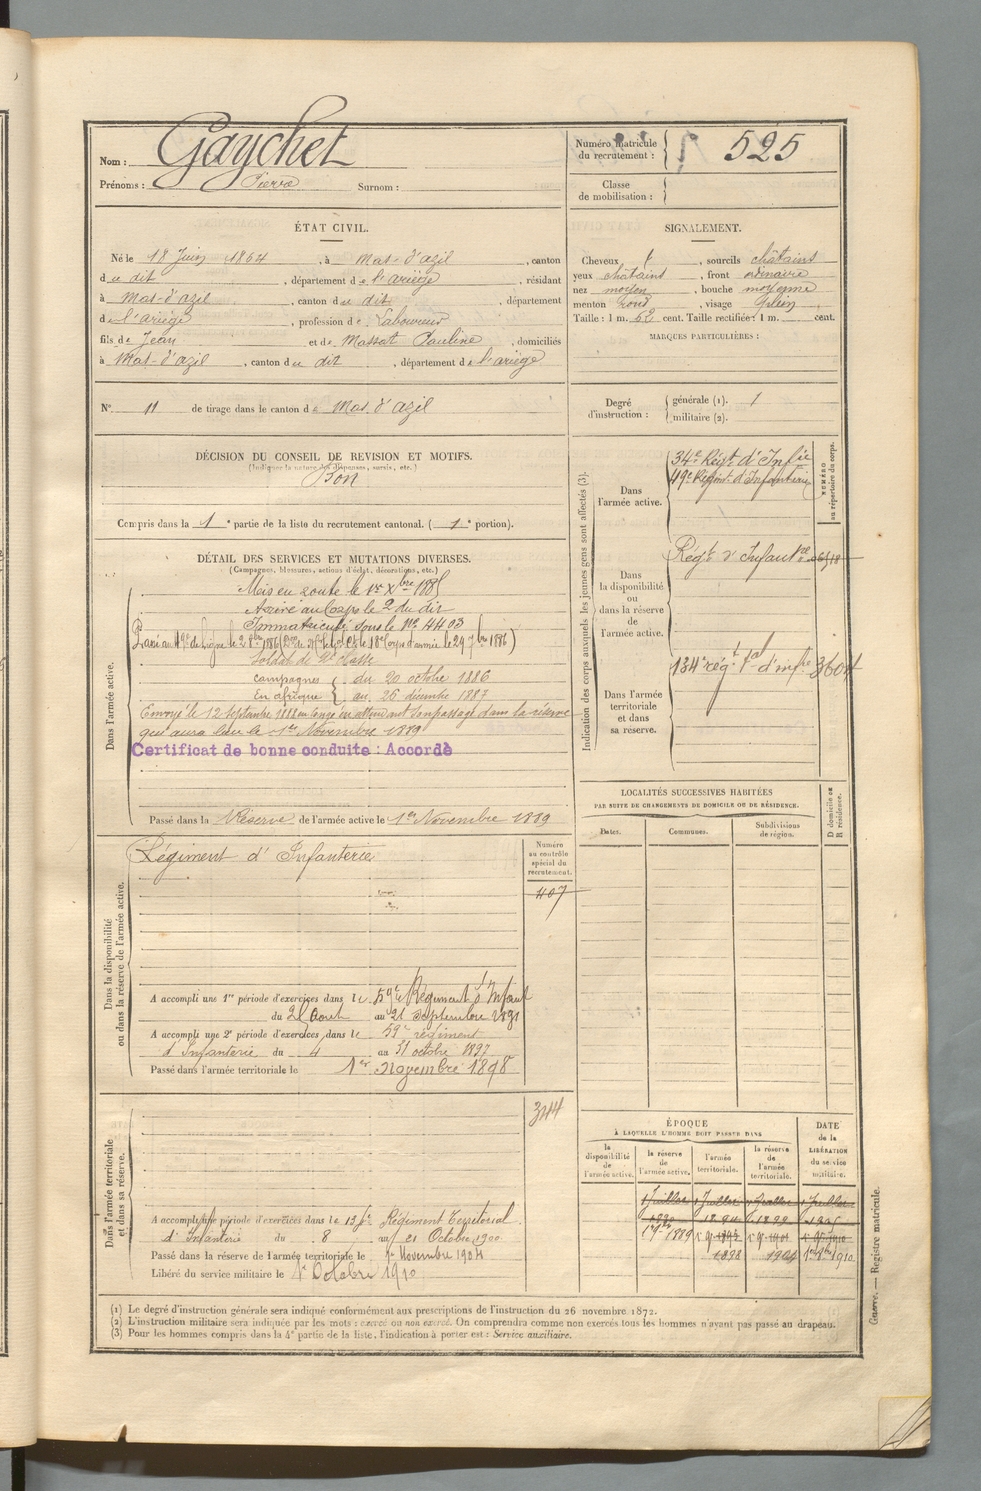 Nom : Gaychet
Prénoms : Pierre Surnom :
Numéro matricule du recrutement : 525
Classe de mobilisation :
ÉTAT CIVIL.
Né le 18 Juin 1864, à Mas-d'azil, canton
du dit, département de l'ariège, résidant
à Mas-d'azil, canton du dit, département
de l'ariège, profession de Laboureur
fils de Jean et de Massat Pauline, domiciliés
à Mas-d'azil, canton du dit, département de l'ariège
N° 11 de tirage dans le canton de Mas d'azil
SIGNALEMENT.
Cheveux, sourcils châtains
yeux châtains, front ordinaire
nez moyen, bouche moyenne
menton rond, visage plein
Taille : 1 m. 62 cent. Taille rectifiée : 1 m. cent.
MARQUES PARTICULIÈRES :
Degré d'instruction : générale (1). 1
militaire (2).
DÉCISION DU CONSEIL DE REVISION ET MOTIFS.
(Indiquer la nature des dispenses, sursis, etc.)
Bon
Compris dans la 1e partie de la liste du recrutement cantonal. (1e portion).
DÉTAIL DES SERVICES ET MUTATIONS DIVERSES.
(Campagnes, blessures, actions d'éclat, décorations, etc.)
Dans l'armée active.
Mis en route le 1er Xbre 1885
Arrivé au Corps le 2 du dit
Immatriculé sous le No 4403
Passé au 49e de ligne le 2 8bre 1886 18e Corps d'armée le 29 7bre 1886)
Soldat de 2e classe
Campagnes du 20 octobre 1886
En afrique au 26 décembre 1887
Envoyé le 12 Septembre 1888 en congé en attendant son passage dans la réserve
qui aura lieu le 1er Novembre 1889
Certificat de bonne conduite : Accordé
Passé dans la Réserve de l'armée active le 1er Novembre 1889
Indication des corps auxquels les jeunes gens sont affectés (3).
NUMÉRO au répertoire du corps.
Dans l'armée active.
34e Régt d'Infie
49e Régimt d'Infanterie
Dans la disponibilité ou dans la réserve de l'armée active.
Régt d'Infantrie
Dans l'armée territoriale et dans sa réserve.
134e régt tal d'infie 3604
LOCALITÉS SUCCESSIVES HABITÉES
PAR SUITE DE CHANGEMENTS DE DOMICILE OU DE RÉSIDENCE.
Dates. Communes. Subdivisions de région. D domicile ou R résidence.
Dans la disponibilité ou dans la réserve de l'armée active.
Régiment d'Infanterie
Numéro au contrôle spécial du recrutement.
407
A accompli une 1re période d'exercices dans le 59e Régiment d'Infant
du 25 Aout au 21 Septembre 1891
A accompli une 2e période d'exercices dans le 59e régiment
d'Infanterie du 4 au 31 octobre 1897
Passé dans l'armée territoriale le 1er Novembre 1898
Dans l'armée territoriale et dans sa réserve.
344
A accompli une période d'exercices dans le 134e Régiment Territorial
d'Infanterie du 8 au 21 Octobre 1900
Passé dans la réserve de l'armée territoriale le 1er Novembre 1904
Libéré du service militaire le 1er Octobre 1910
ÉPOQUE
À LAQUELLE L'HOMME DOIT PASSER DANS
la disponibilité de l'armée active. la réserve de l'armée active. l'armée territoriale. la réserve de l'armée territoriale.
DATE de la LIBÉRATION du service militaire.
1 Juillet 1 Juillet 1 Juillet 1 Juillet
1890
1889
1898 1904 1910
(1) Le degré d'instruction générale sera indiqué conformément aux prescriptions de l'instruction du 26 novembre 1872.
(2) L'instruction militaire sera indiquée par les mots : exercé ou non exercé. On comprendra comme non exercés tous les hommes n'ayant pas passé au drapeau.
(3) Pour les hommes compris dans la 4e partie de la liste, l'indication à porter est : Service auxiliaire.
Guerre. — Registre matricule.